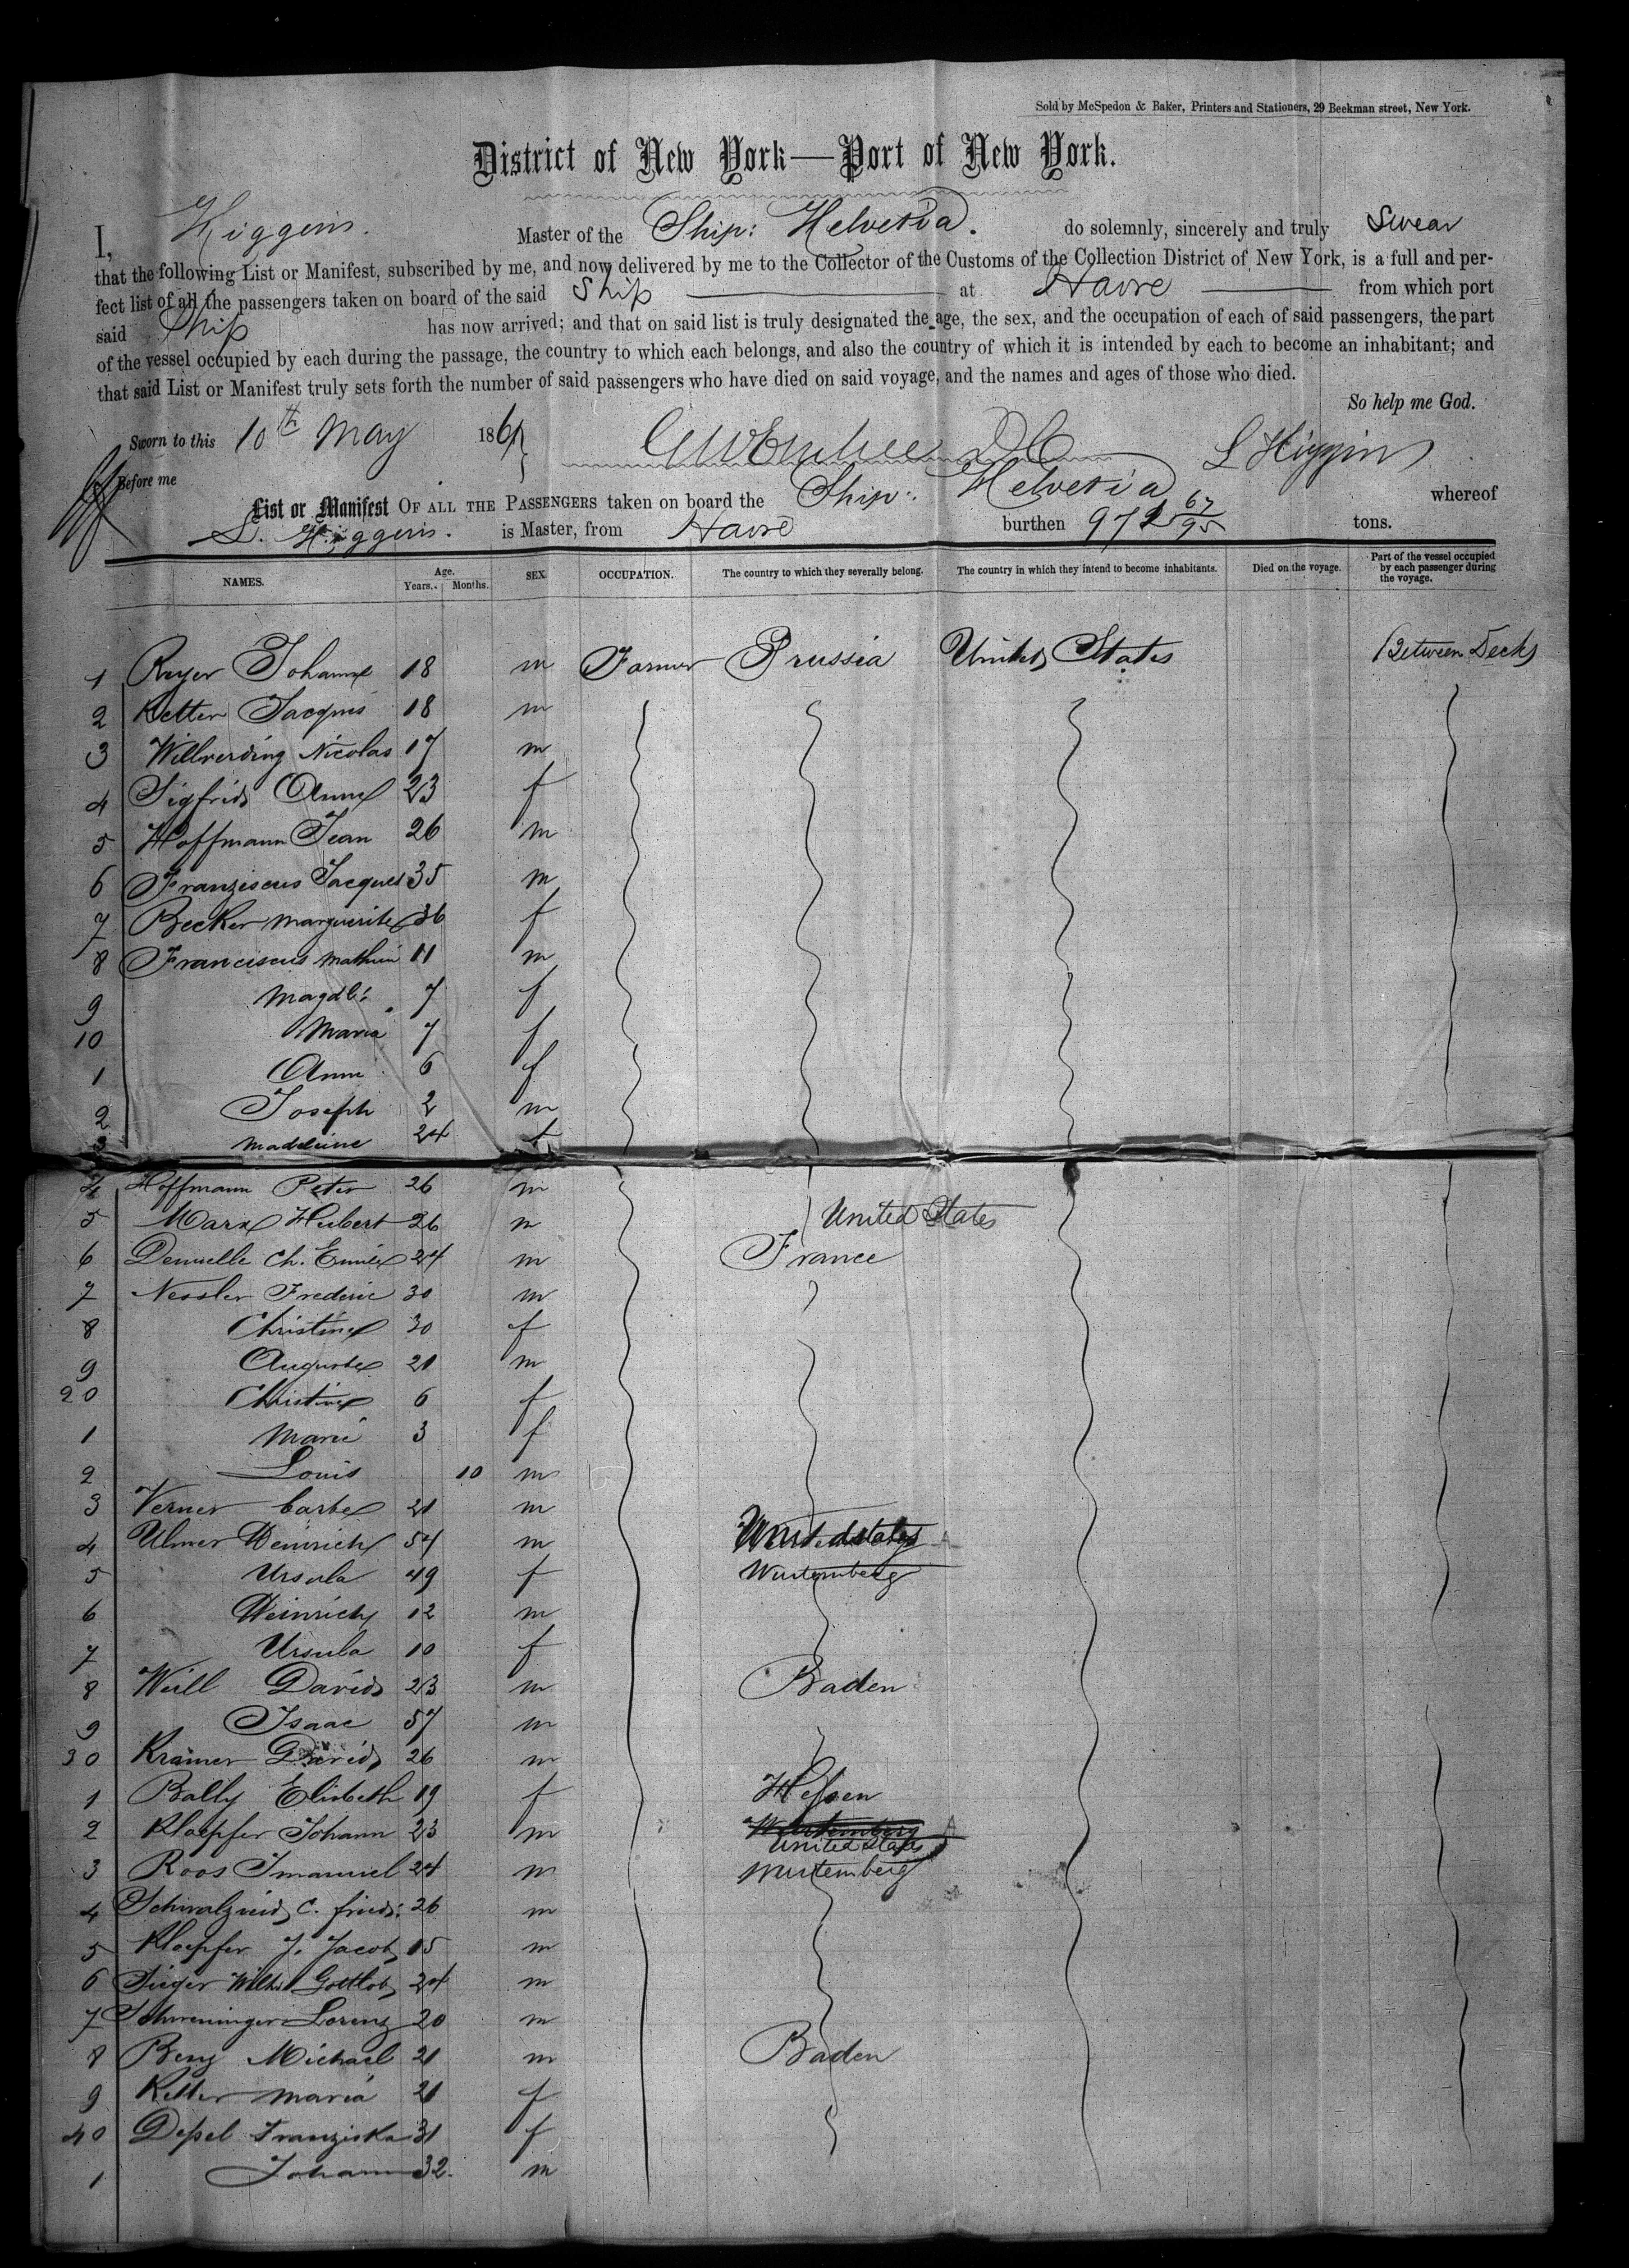 Sold by McSpedon & Baker, Printers and Stationers, 29 Beekman street, New York.
District of New York—Port of New York.
I, Higgens. Master of the Ship: Helvetia. do solemnly, sincerely and truly Swear
that the following List or Manifest, subscribed by me, and now delivered by me to the Collector of the Customs of the Collection District of New York, is a full and per-
fect list of all the passengers taken on board of the said Ship at Havre from which port
said Ship has now arrived; and that on said list is truly designated the age, the sex, and the occupation of each of said passengers, the part
of the vessel occupied by each during the passage, the country to which each belongs, and also the country of which it is intended by each to become an inhabitant; and
that said List or Manifest truly sets forth the number of said passengers who have died on said voyage, and the names and ages of those who died.
So help me God.
Sworn to this 10th May 1861 L Higgins
Before me
List or Manifest OF ALL THE PASSENGERS taken on board the Ship: Helvetia whereof
L. Higgens. is Master, from Havre burthen 971 67/95 tons.
NAMES. Age. Years. Months. SEX. OCCUPATION. The country to which they severally belong. The country in which they intend to become inhabitants. Died on the voyage. Part of the vessel occupied by each passenger during the voyage.
1 Royer Johann 18 m Farmer Prussia United States Between Decks
2 Ketter Jacques 18 m
3 Willverding Nicolas 17 m
4 Sigfrids Anne 23 f
5 Hoffmann Jean 26 m
6 Franziscus Jacques 35 m
7 Becker Marguerite 36 f
8 Franciscus Mathieu 11 m
9 Magdl: 7 f
10 Maria 7 f
1 Anne 6 f
2 Joseph 2 m
3 Madeleine 24 f
4 Hoffmann Peter 26 m
5 Marx Hubert 26 m United States
6 Denuelle Ch. Emile 24 m France
7 Nessler Frederic 30 m
8 Christine 30 f
9 Auguste 21 m
20 Christine 6 f
1 Marie 3 f
2 Louis 10 m
3 Verner Barbe 21 m
4 Ulmer Heinrich 54 m United States
5 Ursula 49 f Wurtemberg
6 Heinrich 12 m
7 Ursula 10 f
8 Weill David 23 m Baden
9 Isaac 57 m
30 Kramer David 26 m
1 Bally Elisbeth 19 f Hessen
2 Kloepfer Johann 23 m Wurtemberg United States
3 Roos Imanuel 24 m Wurtemberg
4 C. fried: 26 m
5 Kloepfer J. Jacob 15 m
6 Sieger Wilh Gottlob 24 m
7 Schweninger Lorenz 20 m
8 Benz Michael 21 m Baden
9 Ketter Maria 21 f
40 Depel Franziska 31 f
1 Johann 32. m